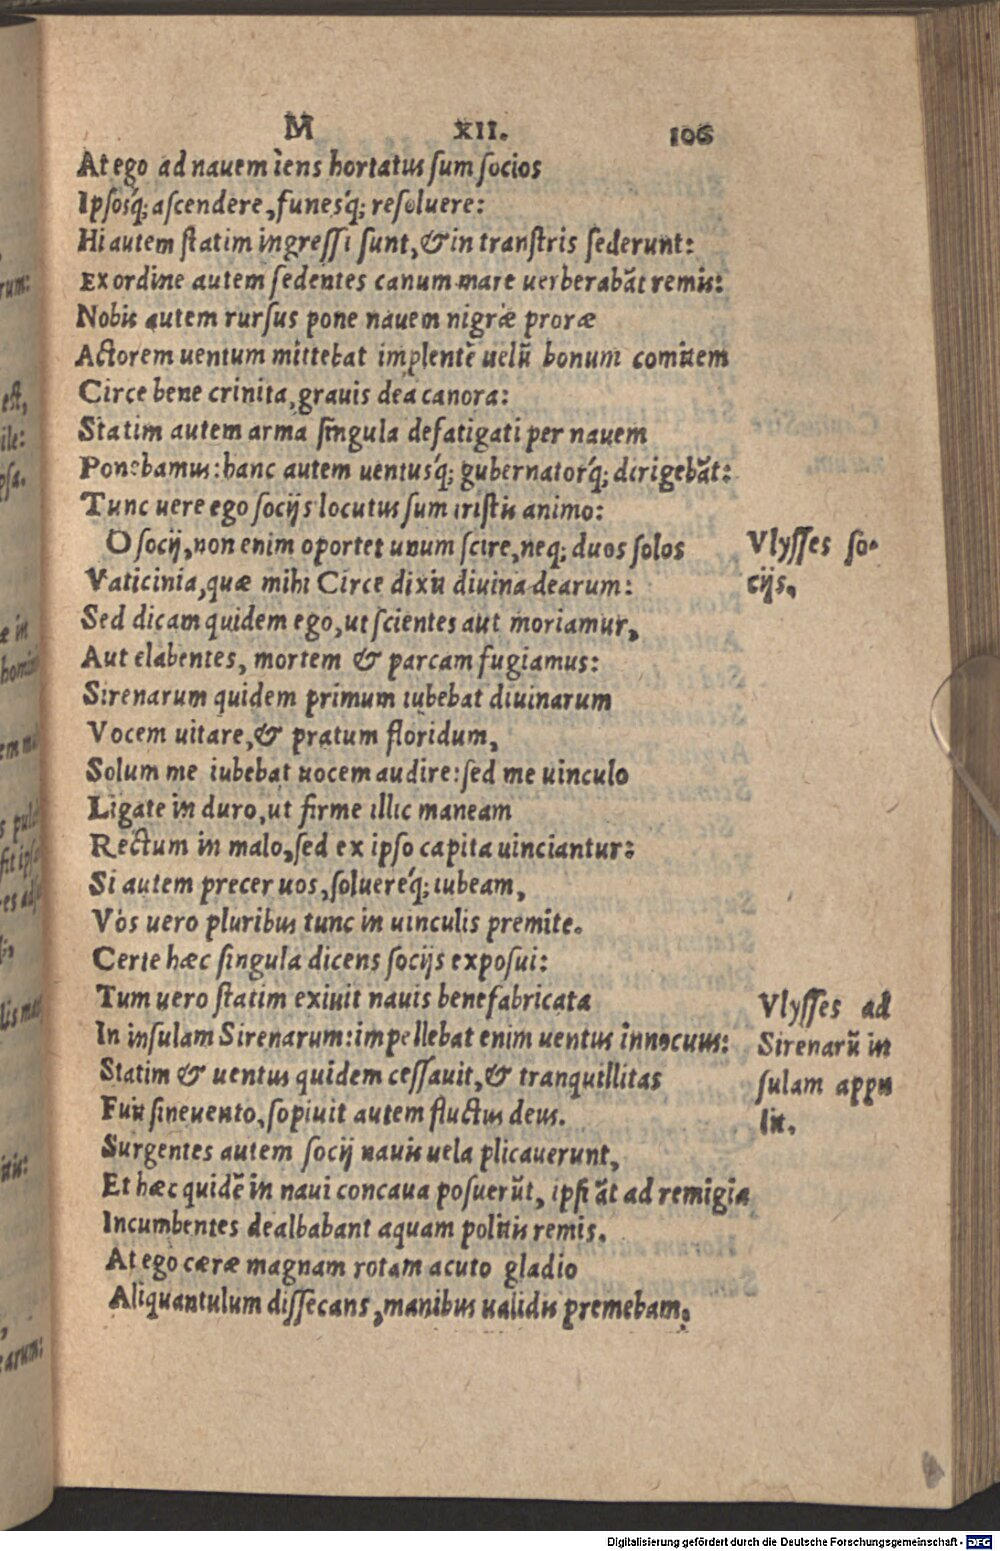 M XII. 106
At ego ad nauem iens hortatus sum socios
Ipsosq́; ascendere, funesq́; resoluere:
Hi autem statim ingressi sunt, & in transtris sederunt:
Ex ordine autem sedentes canum mare uerberabãt remis:
Nobis autem rursus pone nauem nigræ proræ
Actorem uentum mittebat implentẽ uelũ bonum comitem
Circe bene crinita, grauis dea canora:
Statim autem arma singula defatigati per nauem
Ponebamus: hanc autem uentusq́; gubernatorq́; dirigebãt:
Tunc uere ego socijs locutus sum tristis animo:
O socij, non enim oportet unum scire, neq; duos solos
Vlysses so-
cijs.
Vaticinia, quæ mihi Circe dixit diuina dearum:
Sed dicam quidem ego, ut scientes aut moriamur,
Aut elabentes, mortem & parcam fugiamus:
Sirenarum quidem primum iubebat diuinarum
Vocem uitare, & pratum floridum,
Solum me iubebat uocem audire: sed me uinculo
Ligate in duro, ut firme illic maneam
Rectum in malo, sed ex ipso capita uinciantur:
Si autem precer uos, soluereq́; iubeam,
Vos uero pluribus tunc in uinculis premite.
Certe hæc singula dicens socijs exposui:
Tum uero statim exiuit nauis benefabricata
In insulam Sirenarum: impellebat enim uentus innocuus:
Statim & uentus quidem cessauit, & tranquillitas
Fuit sine uento, sopiuit autem fluctus deus.
Vlysses ad
Sirenarũ in
sulam appu
lit.
Surgentes autem socij nauis uela plicauerunt,
Et hæc quidẽ in naui concaua posuerũt, ipsi ãt ad remigia
Incumbentes dealbabant aquam politis remis.
At ego ceræ magnam rotam acuto gladio
Aliquantulum dissecans, manibus ualidis premebam,
Digitalisierung gefördert durch die Deutsche Forschungsgemeinschaft - DFG